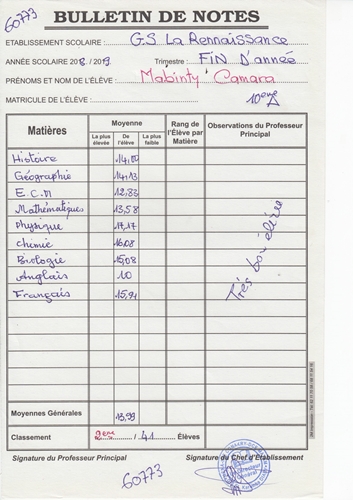 60773
BULLETIN DE NOTES
ETABLISSEMENT SCOLAIRE : G.S La Rennaissance
ANNÉE SCOLAIRE 2018 / 2019 Trimestre : FIN D'année
PRÉNOMS ET NOM DE L'ÉLÈVE : Mabinty Camara
MATRICULE DE L'ÉLÈVE : 10eme A
Matières Moyenne Rang de l'Élève par Matière Observations du Professeur Principal
La plus élevée De l'élève La plus faible
Histoire 14,00
Géographie 14,13
E.C.M 12,83
Mathématiques 13,58
Physique 17,17
chimie 16,08
Biologie 15,08
Anglais 10
Français 15,91
Très bon élève
Moyennes Générales 13,99
Classement 2eme / 41 Élèves
Signature du Professeur Principal Signature du Chef d'Établissement
60773